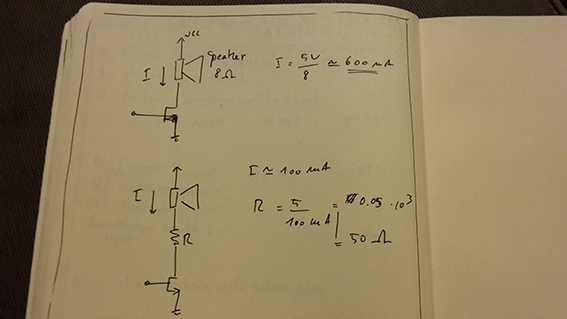 VCC
Speaker
8Ω
I
I = 5V/8 ≃ 600 mA
I ≃ 100 mA
I
R = 5/100 mA = 0.05 · 10³
= 50 Ω
R